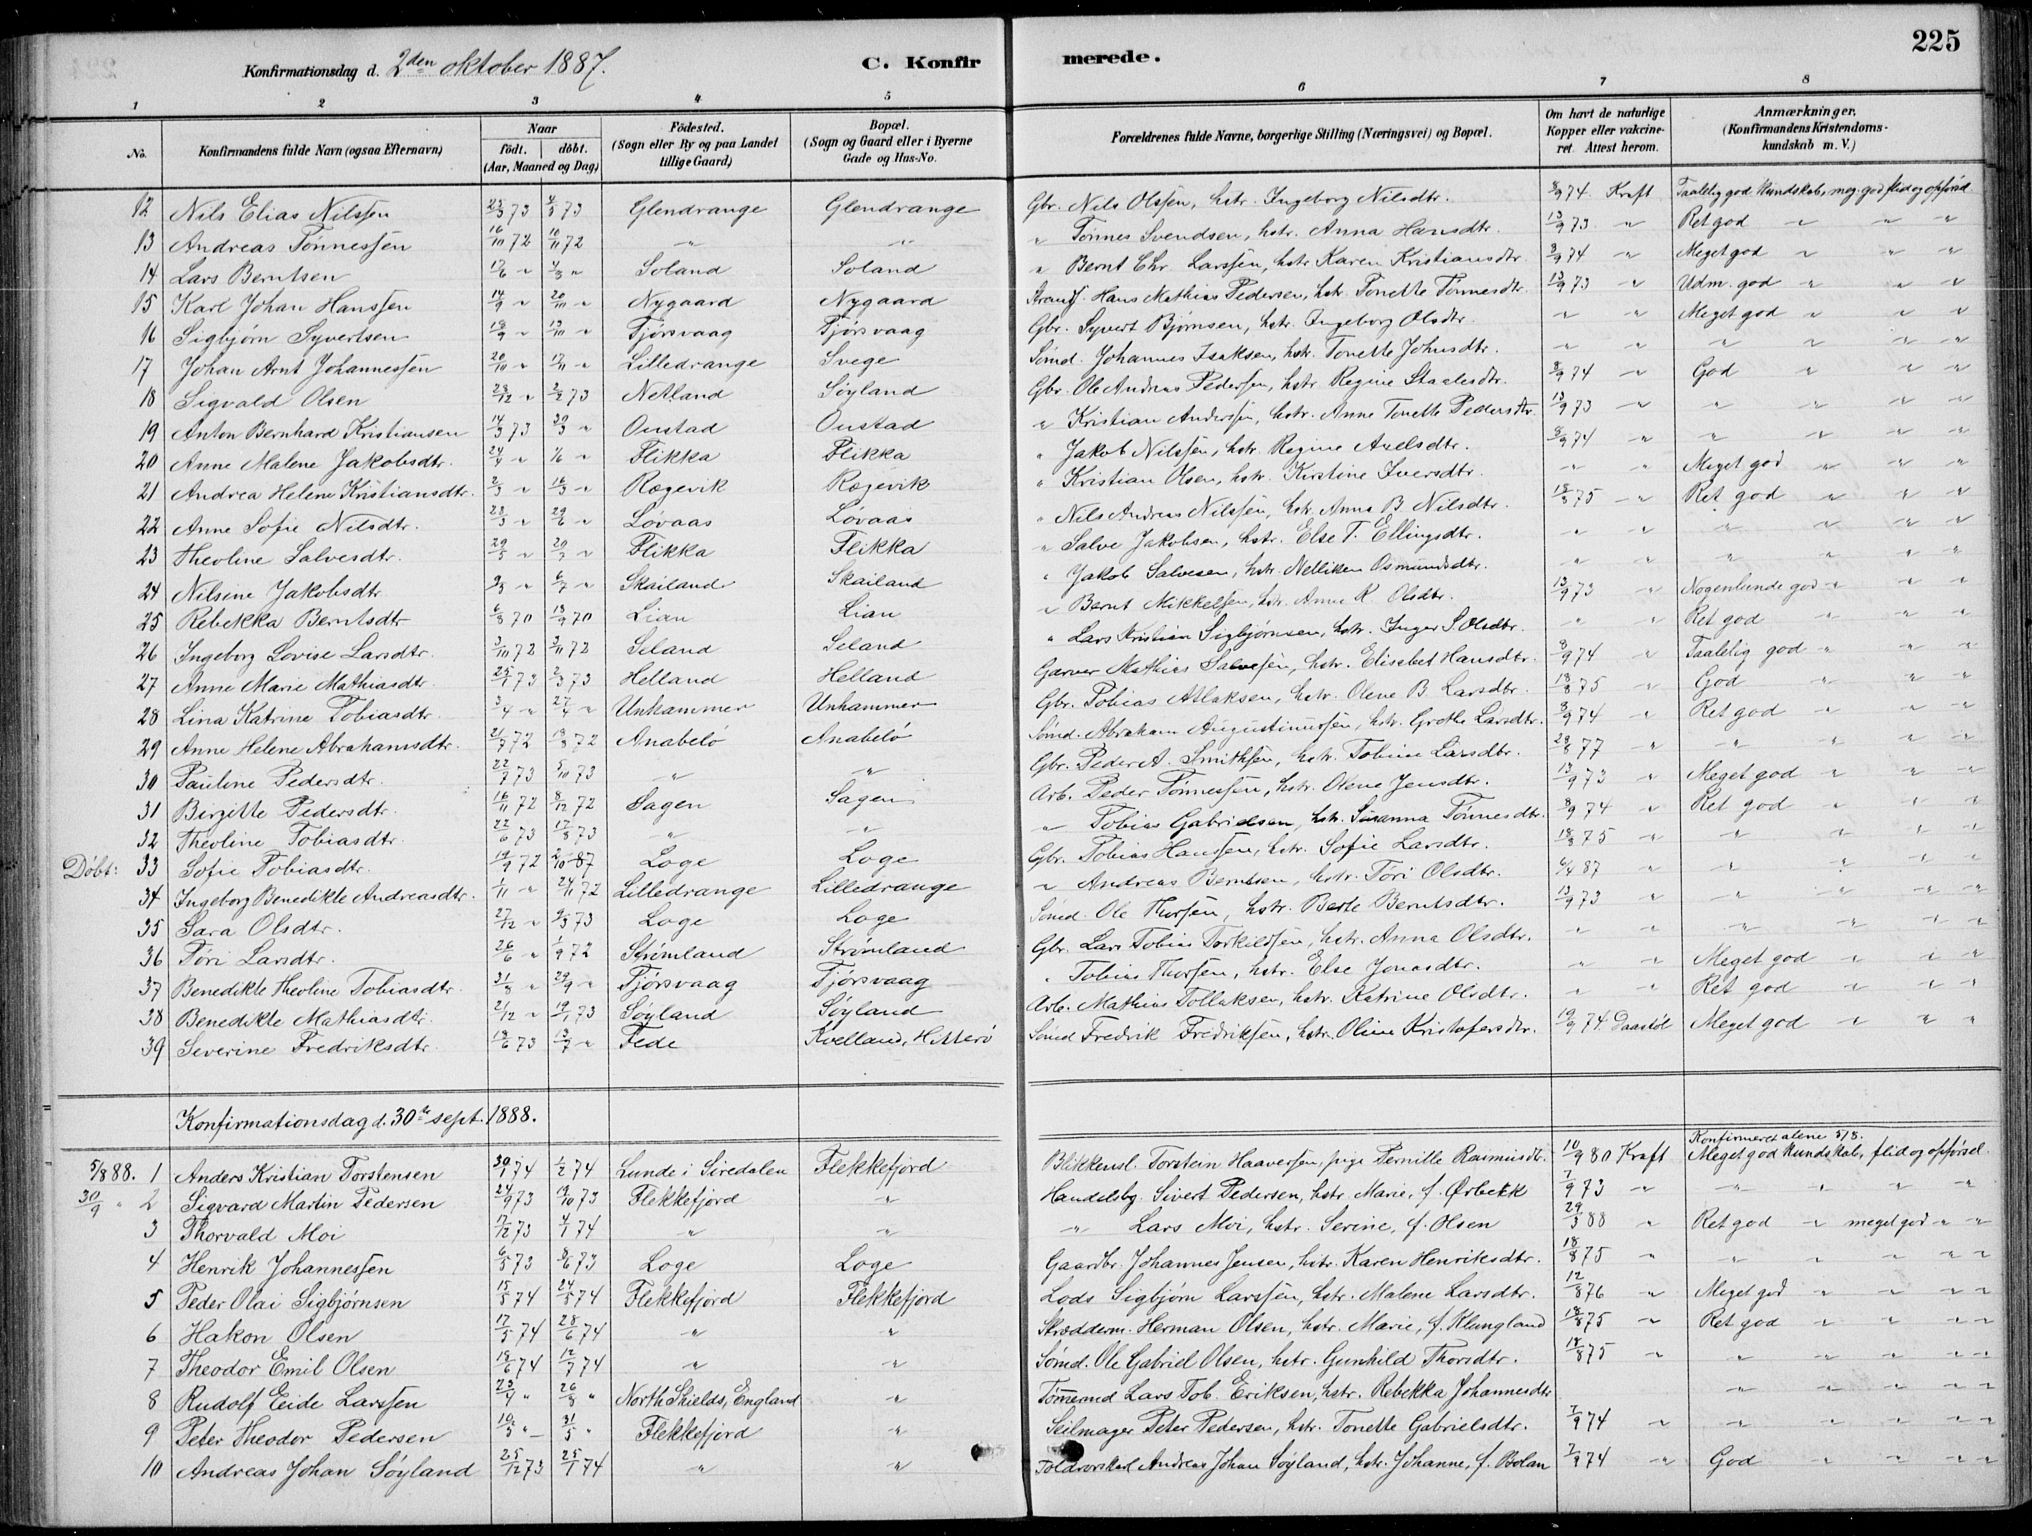 225
Konfirmationsdag d. 2den oktober 1887.
C. Konfirmerede.
1 2 3 4 5 6 7 8
No. Konfirmandens fulde Navn (ogsaa Efternavn) Naar født. døbt. (Aar, Maaned og Dag) Fødested. (Sogn eller By og paa Landet tillige Gaard) Bopæl. (Sogn og Gaard eller i Byerne Gade og Hus-No. Forældrenes fulde Navne, borgerlige Stilling (Næringsvei) og Bopæl. Om havt de naturlige Kopper eller vakcineret. Attest herom. Anmærkninger. (Konfirmandens Kristendomskundskab m. V.)
12 Nils Elias Nilssen 73 73 Glendrange Glendrange Gbr. Nils Olssen, hstr. Ingeborg Nilsdtr. 8/9 74 Kraft Taalelig god Kundskab, meg. god flid og opførsel
13 Andreas Tønnessen 16/10 72 10/11 72 " " " Tønnes Svendsen, hstr. Anna Hansdtr. 13/9 73 " Ret god " " "
14 Lars Berntsen 17/6 " 4/8 " Soland Soland " Bernt Chr. Larssen, hstr. Karen Kristiansdtr. 8/9 74 " Meget god " " "
15 Karl Johan Hanssen 14/9 " 20/10 " Nygaard Nygaard Hans Mathias Pedersen, hstr. Tonette Tønnesdtr. 13/9 73 " Udm. god " " "
16 Sigbjørn Syvertsen 18/9 " 13/10 " Fjørsvaag Fjørsvaag Gbr. Syvert Bjørnsen, hstr. Ingeborg Olsdtr. " " Meget god " " "
17 Johan Arnt Johannessen 20/10 " 17/11 " Lilledrange Svege Sømd. Johannes Isaksen, hstr. Tonette Johnsdtr. " " " " " "
18 Sigvald Olsen 28/12 " 2/2 73 Netland Søyland Gbr. Ole Andreas Pedersen, hstr. Regine Staalesdtr. 8/9 74 " God " " "
19 Anton Bernhard Kristiansen 14/3 73 30/3 " Oustad Oustad " Kristian Anderssen, hstr. Anne Tonette Pedersdtr. 13/9 73 " " " " "
20 Anne Malene Jakobsdtr. 24/4 " 1/6 " Flikka Flikka " Jakob Nilssen, hstr. Regine Axelsdtr. 8/9 74 " " " " "
21 Andrea Helene Kristiansdtr. 2/3 " 16/3 " Rægevik Rægevik " Kristian Olsen, hstr. Kirstine Iversdtr. " " Meget god " " "
22 Anne Sofie Nilsdtr. 28/3 " 29/6 " Løvaas Løvaas " Nils Andreas Nilssen, hstr. Anna B. Nilsdtr. 18/8 75 " Ret god " " "
23 Theoline Salvesdtr. 29/5 " 20/7 " Flikka Flikka " Salve Jakobsen, hstr. Else T. Ellingsdtr. " " " " " "
24 Nilsine Jakobsdtr. " 6/7 " Skailand Skailand " Jakob Salvesen, hstr. Nelliken Osmundsdtr. " " " " " "
25 Rebekka Berntsdtr 6/8 70 18/9 70 Lian Lian " Bernt Mikkelsen, hstr. Anne K. Olsdtr. 13/9 73 " Nogenlunde god " " "
26 Ingeborg Lovise Larsdtr. 3/10 72 3/11 72 Seland Seland " Lars Kristian Sigbjørnsen, hstr. Inger S. Olsdtr. " " Ret god " " "
27 Anne Marie Mathiasdtr. 25/1 73 2/3 73 Helland Helland Garver Mathias Salvesen, hstr. Elisebet Hansdtr. 8/9 74 " Taalelig god " " "
28 Lina Katrine Tobiasdtr. 3/4 " 27/4 " Unhammer Unhammer Gbr. Tobias Atlaksen, hstr. Olene B. Larsdtr. 18/8 75 " God " " "
29 Anne Helene Abrahamsdtr. 21/7 72 18/8 72 Anabelø Anabelø Sømd. Abraham Augustinussen, hstr. Grethe Larsdtr. 8/9 74 " Ret god " " "
30 Pauline Pedersdtr. 22/7 73 5/10 73 " " Gbr. Peder A. Smithsen, hstr. Tobine Larsdtr. 29/8 77 " " " " "
31 Birgitte Pedersdtr. 16/11 72 8/12 72 Sagen Sagen Arb. Peder Tønnessen, hstr. Olene Jensdtr. 13/9 73 " Meget god " " "
32 Theoline Tobiasdtr. 22/6 73 17/8 73 " " " Tobias Gabrielsen, hstr. Susanna Tønnesdtr. 8/9 74 " Ret god " " "
Døbt: 33 Sofie Tobiasdtr. 19/9 72 2/10 87 Loge Loge Gbr. Tobias Hanssen, hstr. Sofie Larsdtr. 18/8 75 " " " " "
34 Ingeborg Benedikte Andreasdtr. 1/11 " 24/11 72 Lilledrange Lilledrange " Andreas Berntsen, hstr. Tori Olsdtr. 6/4 87 " " " "
35 Sara Olsdtr. 27/12 " 9/3 73 Loge Loge Sømd. Ole Thorsen, hstr. Berte Berntsdtr. 13/9 73 " " " " "
36 Tori Larsdtr. 26/6 " 1/9 72 Strømland Strømland Gbr. Lars Tobias Torkildsen, hstr. Anna Olsdtr. " " " " " "
37 Benedikte Theoline Tobiasdtr. 31/8 " 29/9 " Fjørsvaag Fjørsvaag " Tobias Thorsen, hstr. Else Jonasdtr. " " Meget god " " "
38 Benedikte Mathiasdtr. 21/12 " 19/1 73 Søyland Søyland Arb. Mathias Tollaksen, hstr. Katrine Olsdtr. " " Ret god " " "
39 Severine Fredriksdtr. 18/6 73 13/7 " Fede Kvelland, Hitterø Sømd Fredrik Fredriksen, hstr. Oline Kristofersdtr. 19/9 74 Meget god " " "
Konfirmationsdag d. 30te sept. 1888.
Konfirmeret alene 5/8.
5/8 88. 1 Anders Kristian Torstensen 30/1 74 1/2 74 Lunde i Siredalen Flekkefjord Blikkensl. Torstein Haaversen, pige Pernille Rasmusdtr. 10/9 80 Kraft Meget god Kundskab, flid og opførsel.
30/9 " 2 Sigvard Martin Pedersen 24/9 73 19/10 73 Flekkefjord " Handelsbg. Sivert Pedersen, hstr. Marie, f. Ørbekk 7/9 73 " " " " "
3 Thorvald Moi 7/12 73 4/1 74 " " " Lars Moi, hstr. Serine, f. Olsen 29/3 88 " Ret god " meget god " "
4 Henrik Johannessen 6/5 73 8/6 73 Loge Loge Gaardbr. Johannes Jensen, hstr. Karen Henriksdtr. 18/8 75 " " " " " "
5 Peder Olai Sigbjørnsen 15/5 74 24/5 74 Flekkefjord Flekkefjord Lods Sigbjørn Larssen, hstr. Malene Larsdtr. 12/8 76 " Meget god " " " "
6 Hakon Olsen 17/5 74 28/6 74 " " Skrædderm. Herman Olsen, hstr. Marie, f. Klungland 18/8 75 " Ret god " " " "
7 Theodor Emil Olsen 18/6 74 12/7 74 " " Sømd. Ole Gabriel Olsen, hstr. Gunhild Thorsdtr. 18/8 75 " " " " " "
8 Rudolf Eide Larssen 23/4 " 26/8 " North Shields, England " Tømmermd Lars Tob. Eriksen, hstr. Rebekka Johannesdtr " " " " "
9 Peter Theodor Pedersen 10/5 " 31/5 " Flekkefjord " Seilmager Peter Pedersen, hstr. Tonette Gabrielsdtr. 7/9 74 " " " " " "
10 Andreas Johan Søyland 25/12 73 25/1 74 " " Toldrorskarl Andreas Johan Søyland, hstr. Johanne, f. Bolan 7/9 74 " God " " " "